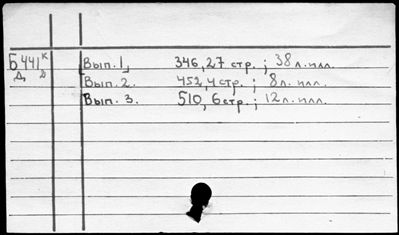 Б441к Вып. 1, 346, 27 стр.; 38 л. илл.
Д д Вып. 2. 452, 4 стр.; 8 л. илл.
Вып. 3. 510, 6 стр.; 12 л. илл.